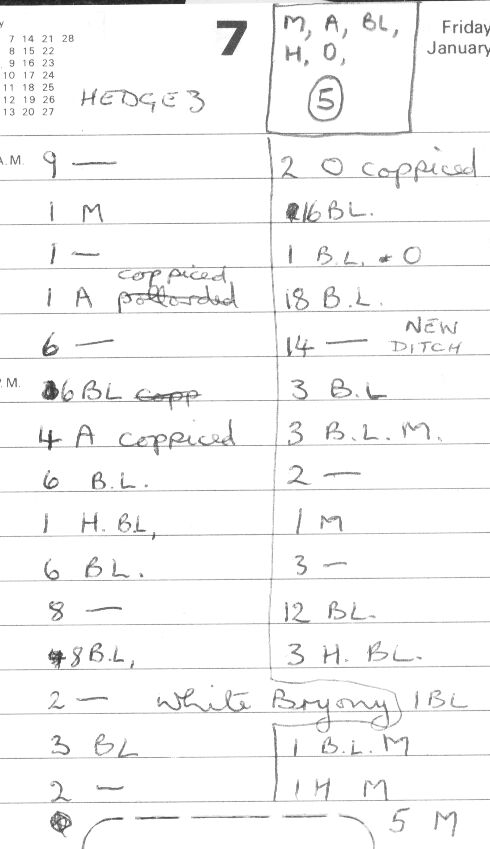 7 14 21 28
8 15 22
9 16 23
10 17 24
11 18 25
12 19 26
13 20 27
7
M, A, BL,
H, O,
5
Friday
January
HEDGE 3
A.M. 9 —
1 M
1 —
coppiced
1 A pollarded
6 —
P.M. 6 BL copp
4 A coppiced
6 B.L.
1 H. BL,
6 BL.
8 —
8 B.L,
2 — White Bryony
3 BL
2 —
2 O coppiced
16 BL.
1 B.L. O
18 B.L.
14 — NEW
DITCH
3 B.L
3 B.L. M.
2 —
1 M
3 —
12 BL.
3 H. BL.
1 BL
1 B.L. M
1 H M
5 M